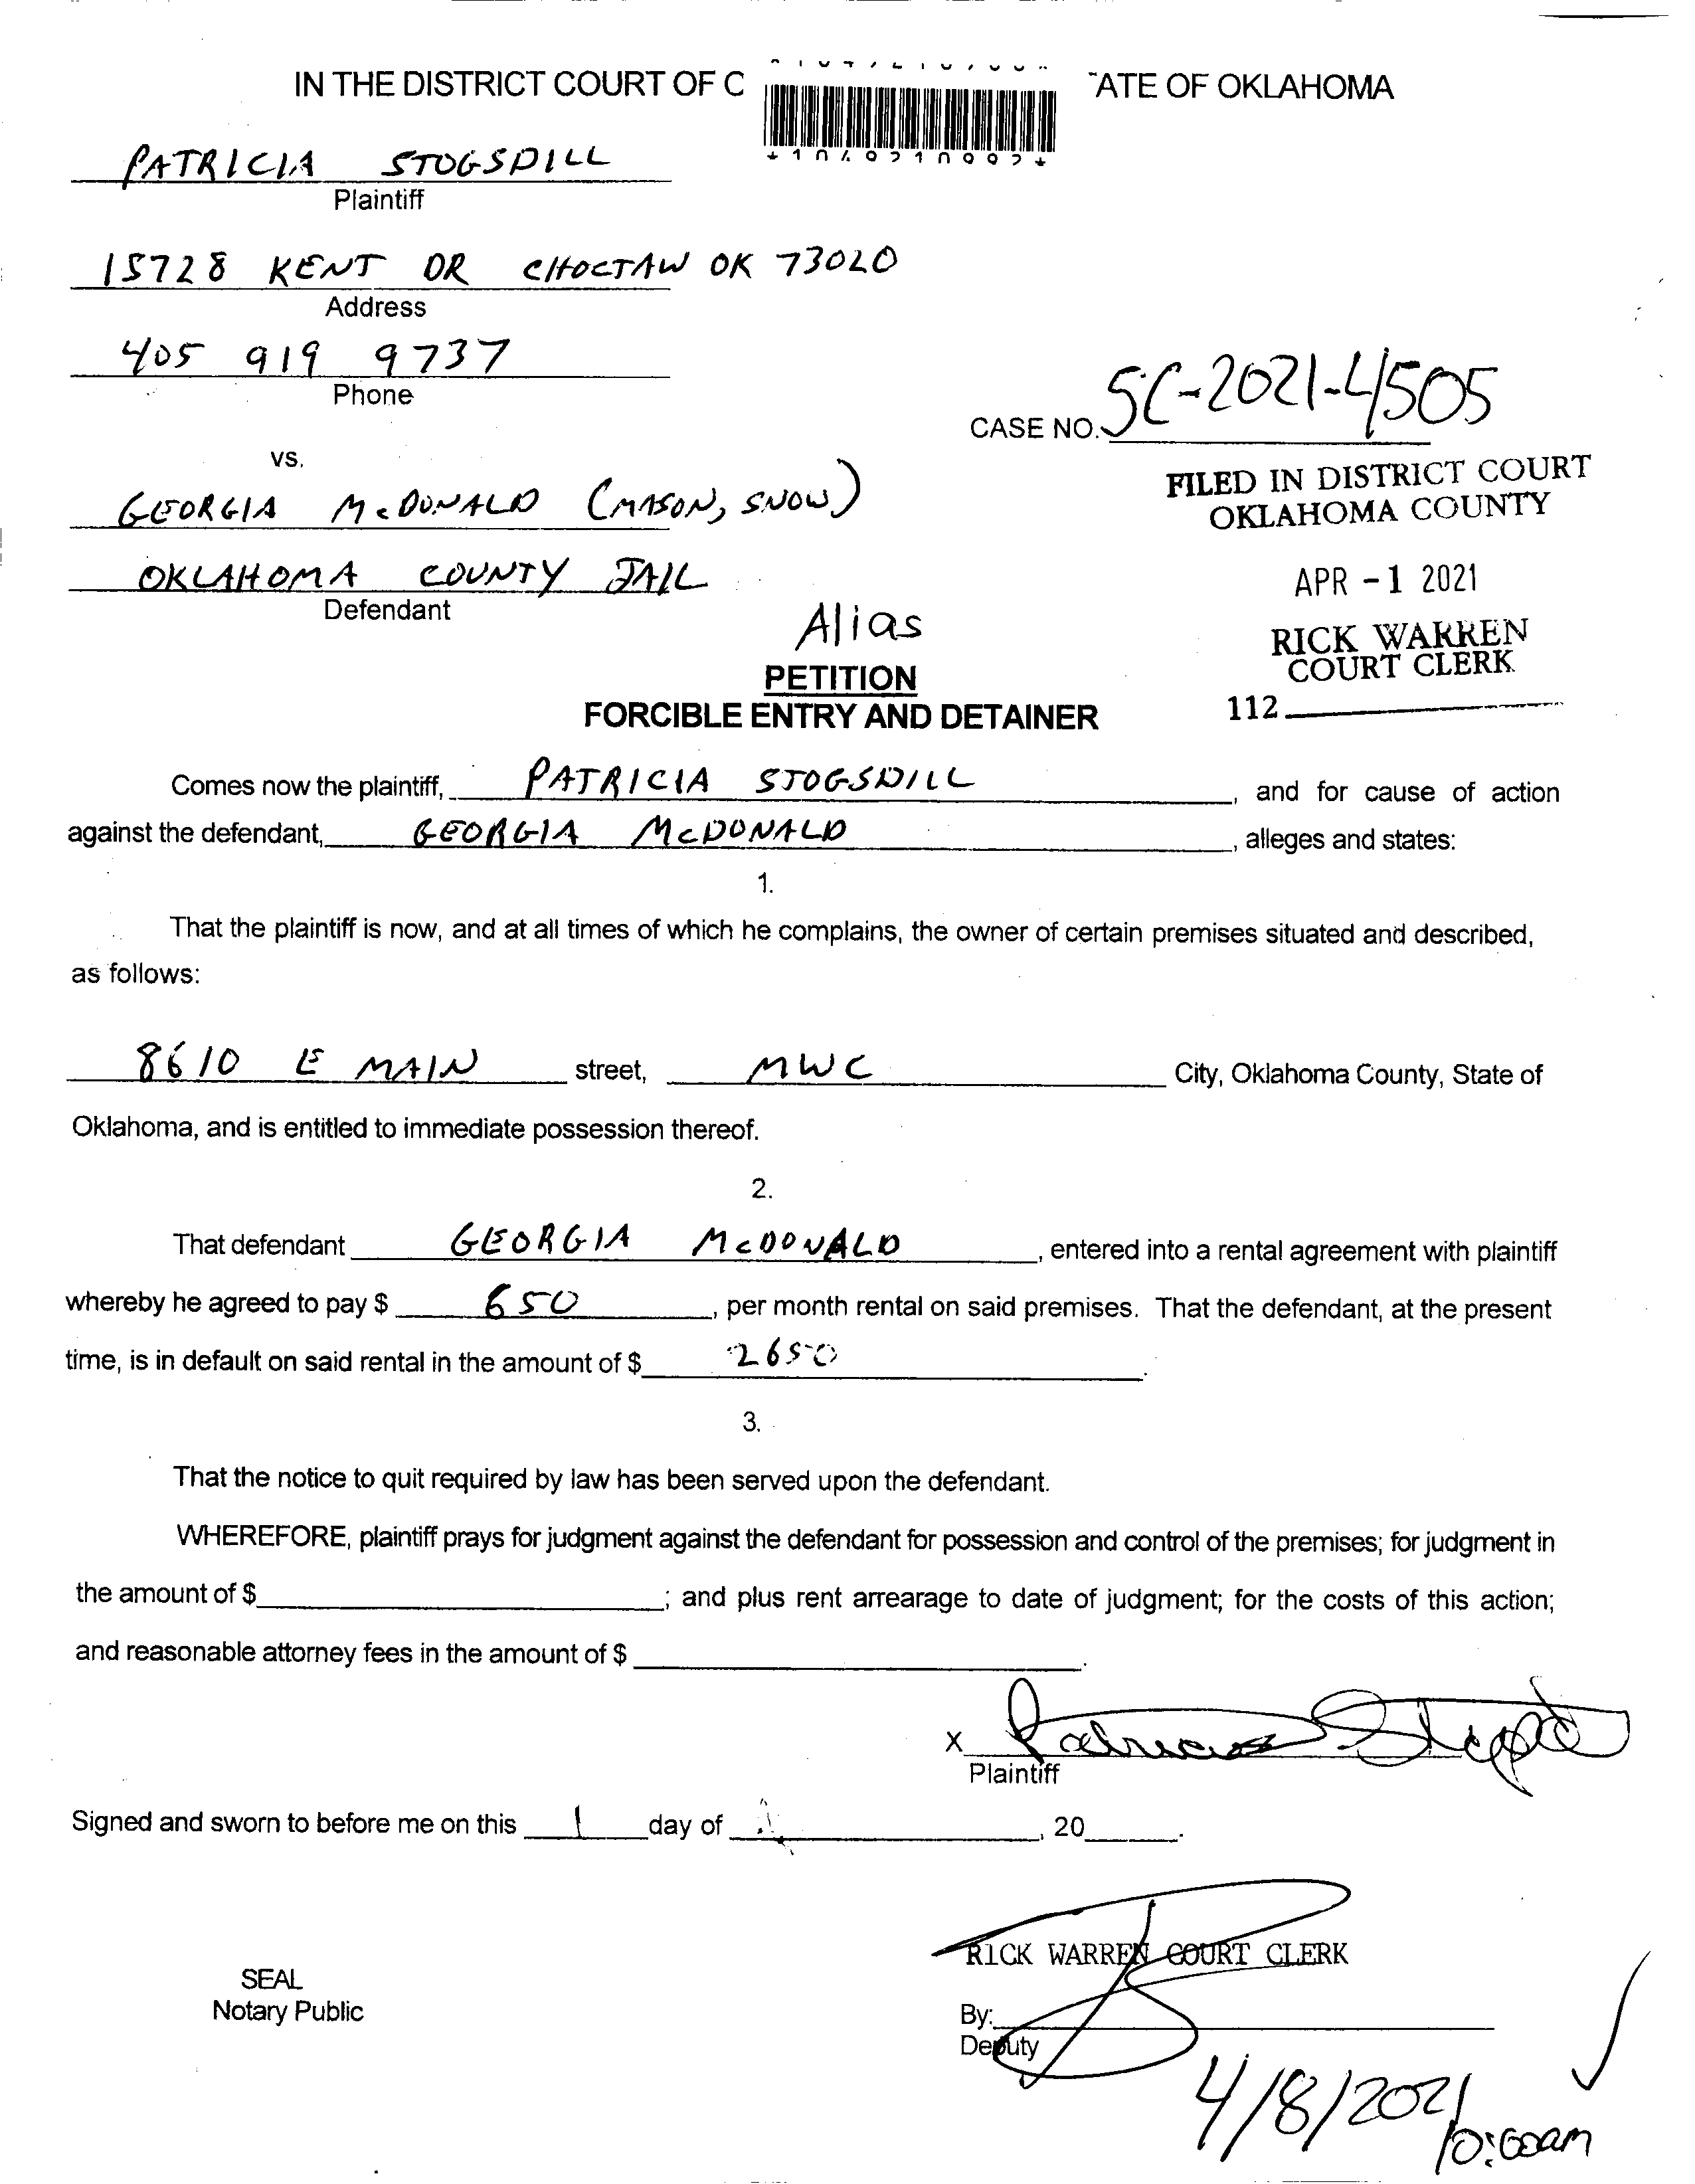 IN THE DISTRICT COURT OF C
ATE OF OKLAHOMA
PATRICIA STOGSDILL
Plaintiff
15728 KENT DR CHOCTAW OK 73020
Address
405 919 9737
Phone
CASE NO. SC-2021-4505
vs.
FILED IN DISTRICT COURT
OKLAHOMA COUNTY
GEORGIA McDONALD (MASON, SNOW)
OKLAHOMA COUNTY JAIL
Defendant
APR -1 2021
Alias
RICK WARREN
COURT CLERK
PETITION
112
FORCIBLE ENTRY AND DETAINER
Comes now the plaintiff, PATRICIA STOGSDILL, and for cause of action
against the defendant, GEORGIA McDONALD, alleges and states:
1.
That the plaintiff is now, and at all times of which he complains, the owner of certain premises situated and described,
as follows:
8610 E MAIN street, MWC City, Oklahoma County, State of
Oklahoma, and is entitled to immediate possession thereof.
2.
That defendant GEORGIA McDONALD, entered into a rental agreement with plaintiff
whereby he agreed to pay $ 650, per month rental on said premises. That the defendant, at the present
time, is in default on said rental in the amount of $ 2650.
3.
That the notice to quit required by law has been served upon the defendant.
WHEREFORE, plaintiff prays for judgment against the defendant for possession and control of the premises; for judgment in
the amount of $ ; and plus rent arrearage to date of judgment; for the costs of this action;
and reasonable attorney fees in the amount of $ .
X Patricia
Plaintiff
Signed and sworn to before me on this 1 day of , 20 .
RICK WARREN COURT CLERK
SEAL
Notary Public
By:
Deputy
4/8/2021
10:00am